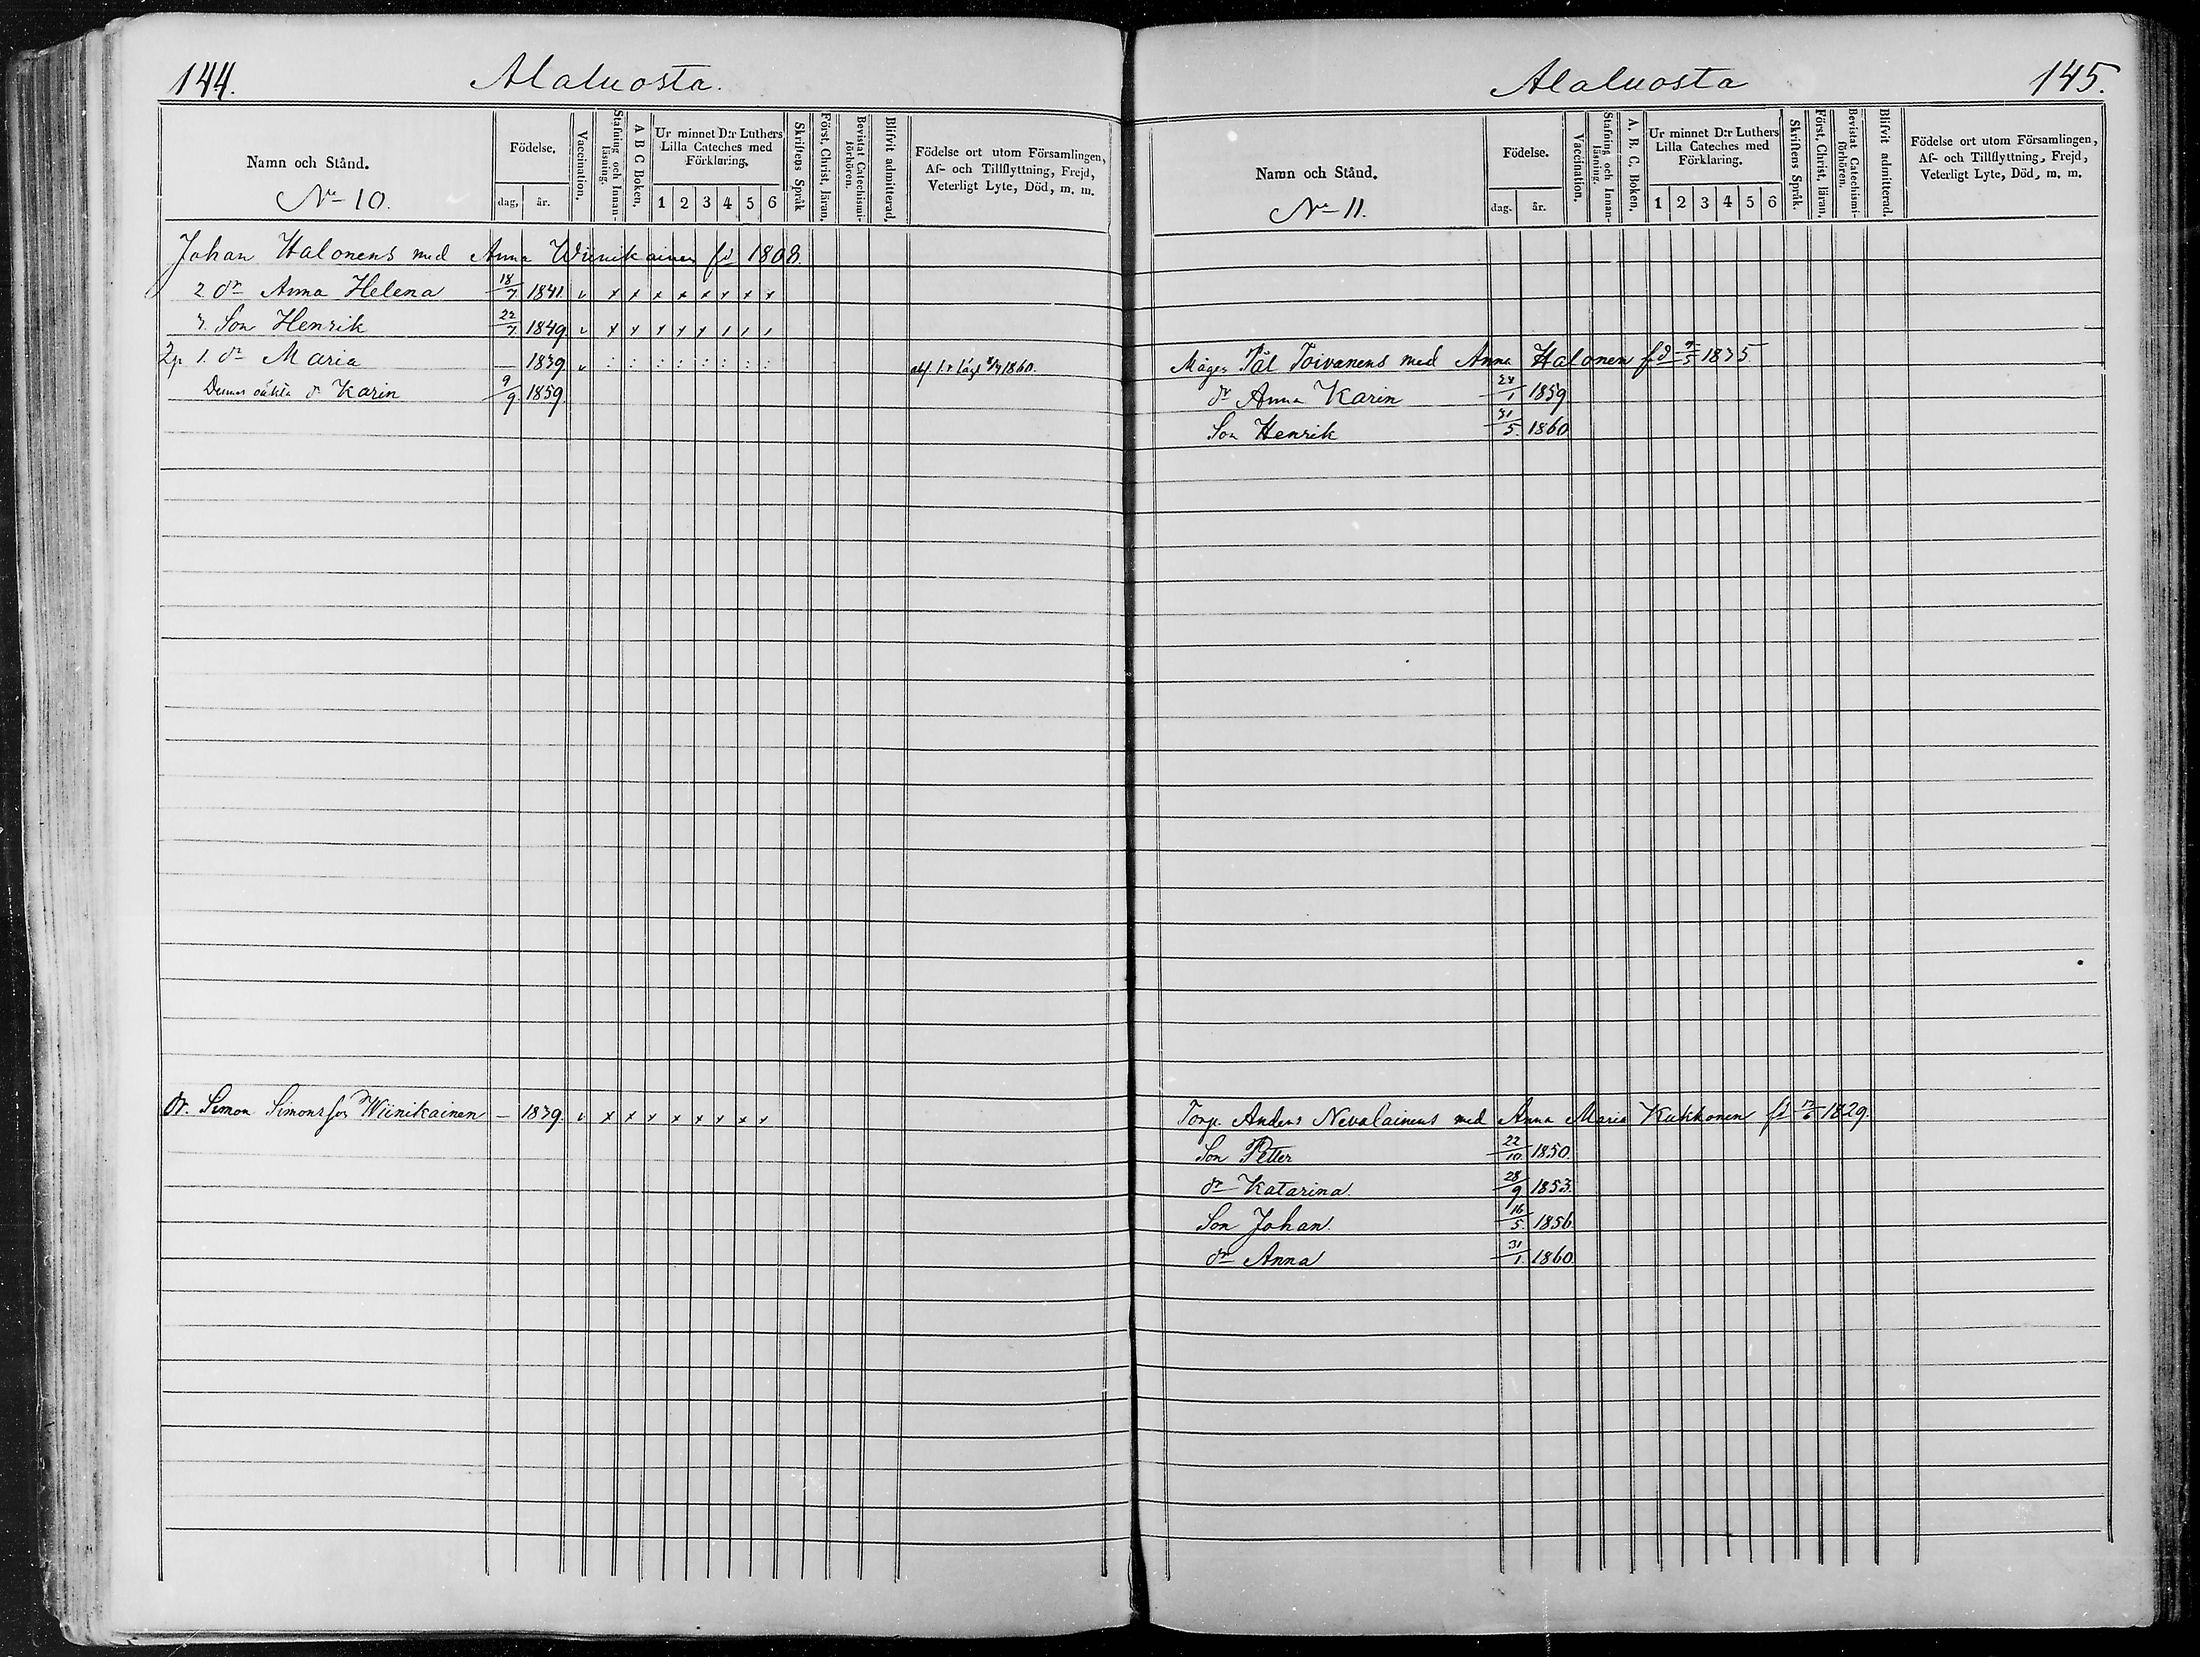 144.
Alaluosta.
Namn och Stånd.
No 10.
Födelse.
dag.
år.
Vaccination.
Stafning och Innan-
läsning.
A B C Boken.
Ur minnet D:r Luthers
Lilla Cateches med
Förklaring.
1 2 3 4 5 6
Skriftens Språk
Först. Christ. läran.
Bevistat Catechismi-
förhören.
Blifvit admitterad.
Födelse ort utom Församlingen,
Af- och Tillflyttning, Frejd,
Veterligt Lyte, Död, m. m.
Johan Halonens med Anna Wiinikainen fd 1808.
2 dr Anna Helena 18/7 1841. v x x x x x x x x
3. Son Henrik 22/7. 1849. v x x x x x / / /
2p 1. dr Maria — 1839 v : : : : : : : : 1860.
Dennes oäkta dr Karin 9/9. 1859.
Dr. Simon Simonsson Wiinikainen — 1839. v x x x x x x x x
Alaluosta
145.
Namn och Stånd.
No 11.
Födelse.
dag.
år.
Vaccination.
Stafning och Innan-
läsning.
A. B. C. Boken.
Ur minnet D:r Luthers
Lilla Cateches med
Förklaring.
1 2 3 4 5 6
Skriftens Språk.
Först. Christ. läran.
Bevistat Catechismi-
förhören.
Blifvit admitterad.
Födelse ort utom Församlingen,
Af- och Tillflyttning, Frejd,
Veterligt Lyte, Död, m. m.
Måges Pål Toivanens med Anna Halonen fd 9/5 1835.
dr Anna Karin 24/1 1859
Son Henrik 31/5. 1860
Torp. Anders Nevalainens med Anna Maria Kukkonen fd 1829.
Son Petter 22/10 1850.
dr Katarina. 28/9 1853.
Son Johan. 16/5. 1856
dr Anna 31/1. 1860.